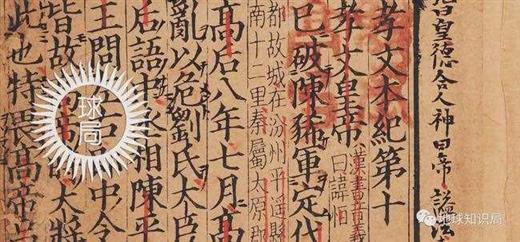 皇德合人神曰帝 諡法
孝文本紀第十
孝文皇帝
漢書音義
曰諱恒
巳破陳豨軍定代
都故城在汾州平遥縣
南十二里秦屬太原郡
高后八年七月高
亂以危劉氏大臣
后語中丞相陳平
王問中令
皆故大將
此也特畏高帝
球局
地球知识局